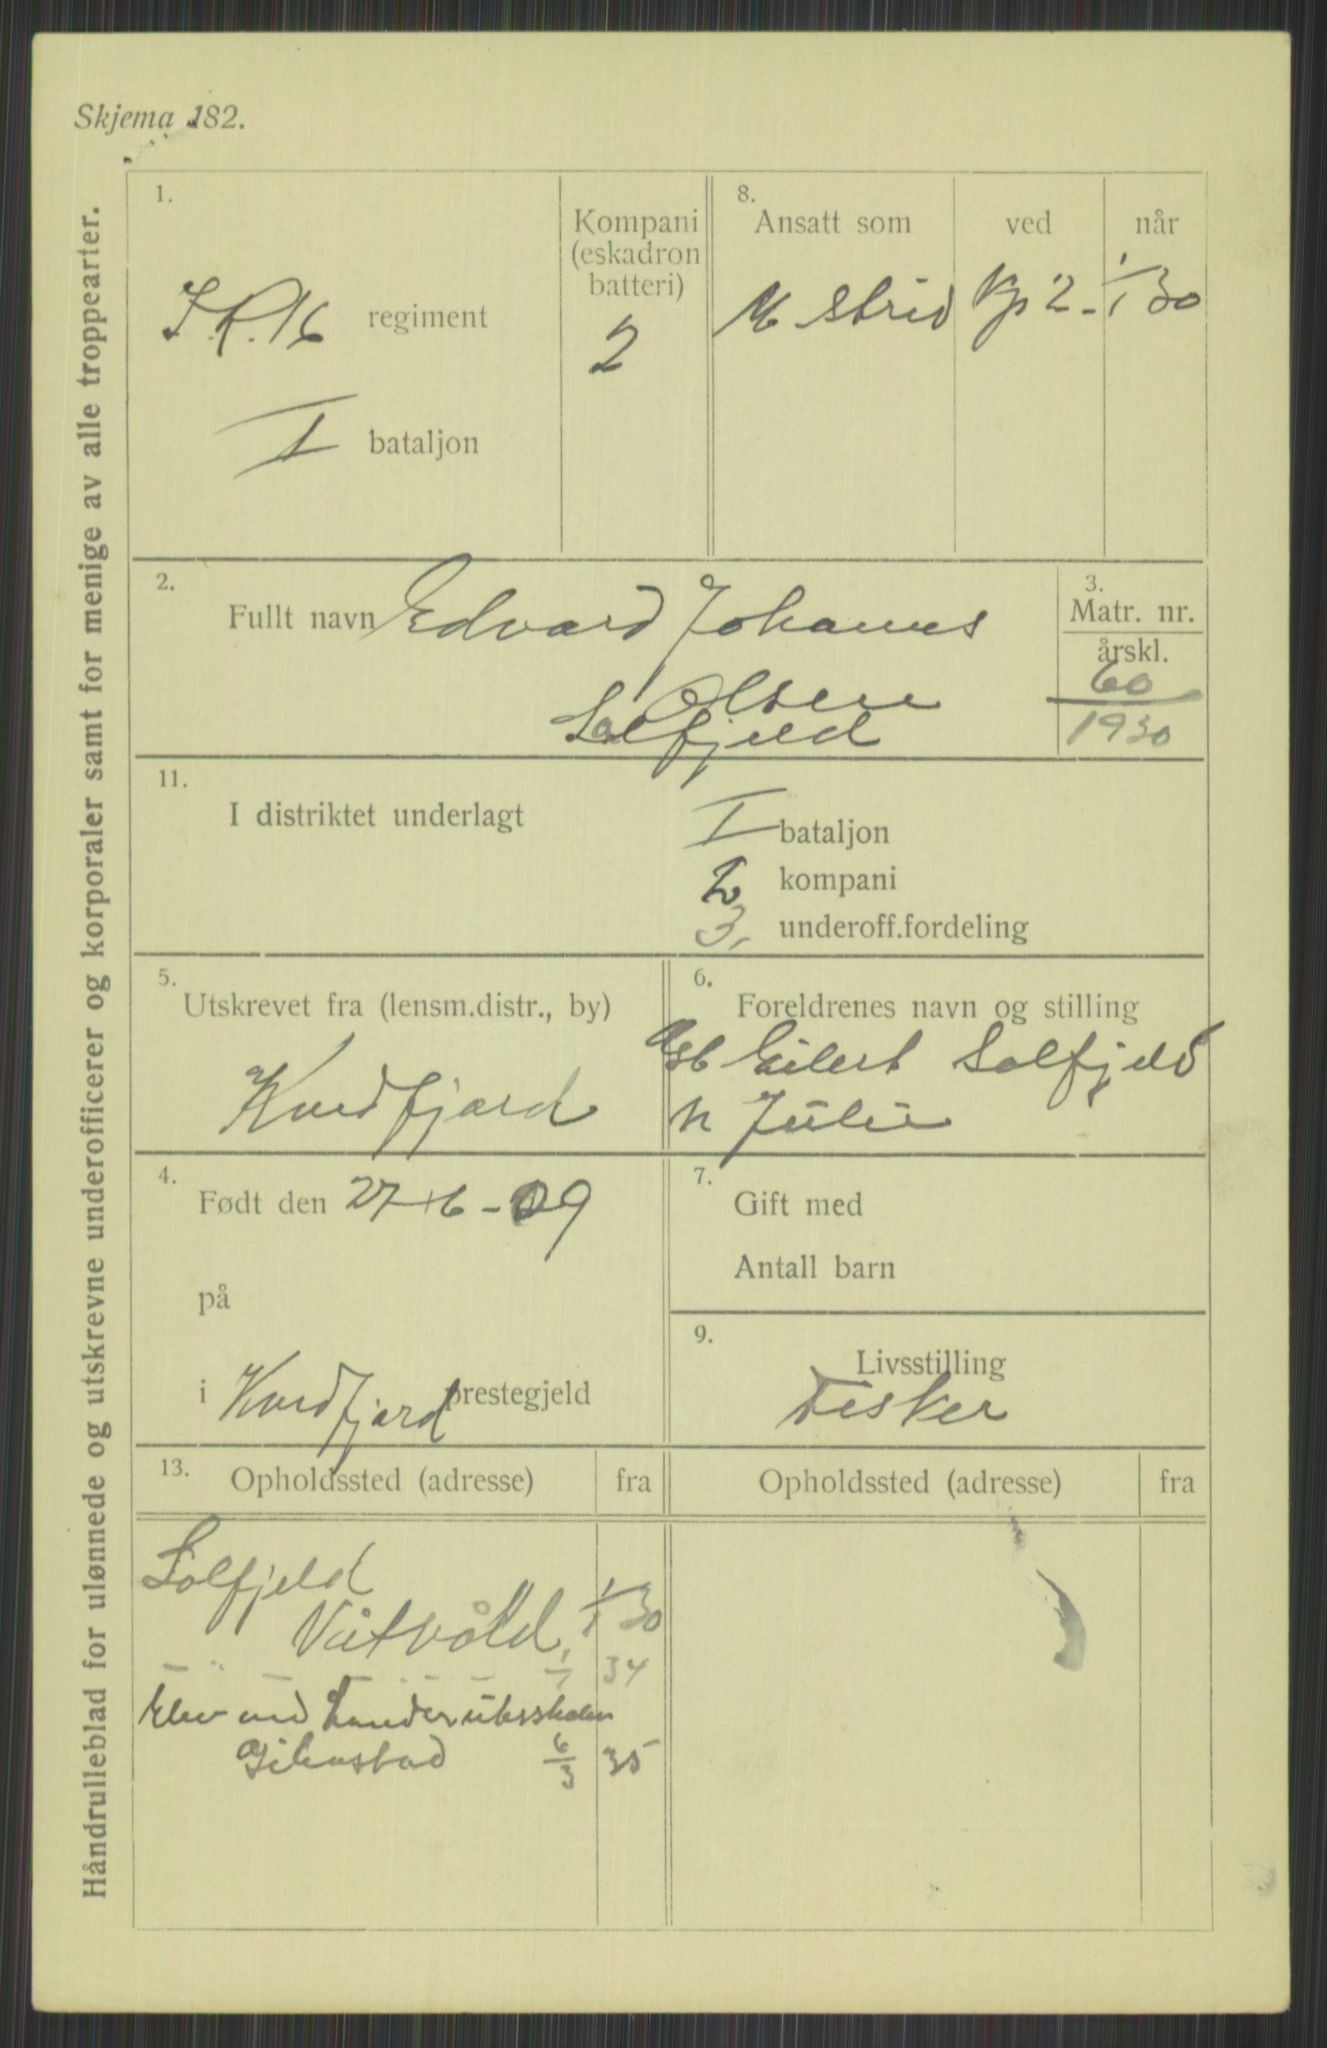 Skjema 182.
Håndrulleblad for ulønnede og utskrevne underofficerer og korporaler samt for menige av alle troppearter.
1.
I.R.16 regiment
I bataljon
Kompani
(eskadron
batteri)
2
8.
Ansatt som ved når
M strid Kp 2 - 1/1 30
2.
Fullt navn Edvard Johannes
Olsen
Solfjeld
3.
Matr. nr.
årskl.
60
1930
11.
I distriktet underlagt
I bataljon
2 kompani
3. underoff.fordeling
5.
Utskrevet fra (lensm.distr., by)
Kvedfjord
6.
Foreldrenes navn og stilling
Gsb Eilert Solfjeld
n Julie
4.
Født den 27-6-09
på
i Kvedfjord prestegjeld
7.
Gift med
Antall barn
9.
Livsstilling
Fisker
13.
Opholdssted (adresse) fra Opholdssted (adresse) fra
Solfjeld
Våtvold 1/1 30
— " — — " — 1/1 34
Elev ved Landbruksskolen
Gibostad 6/3 35